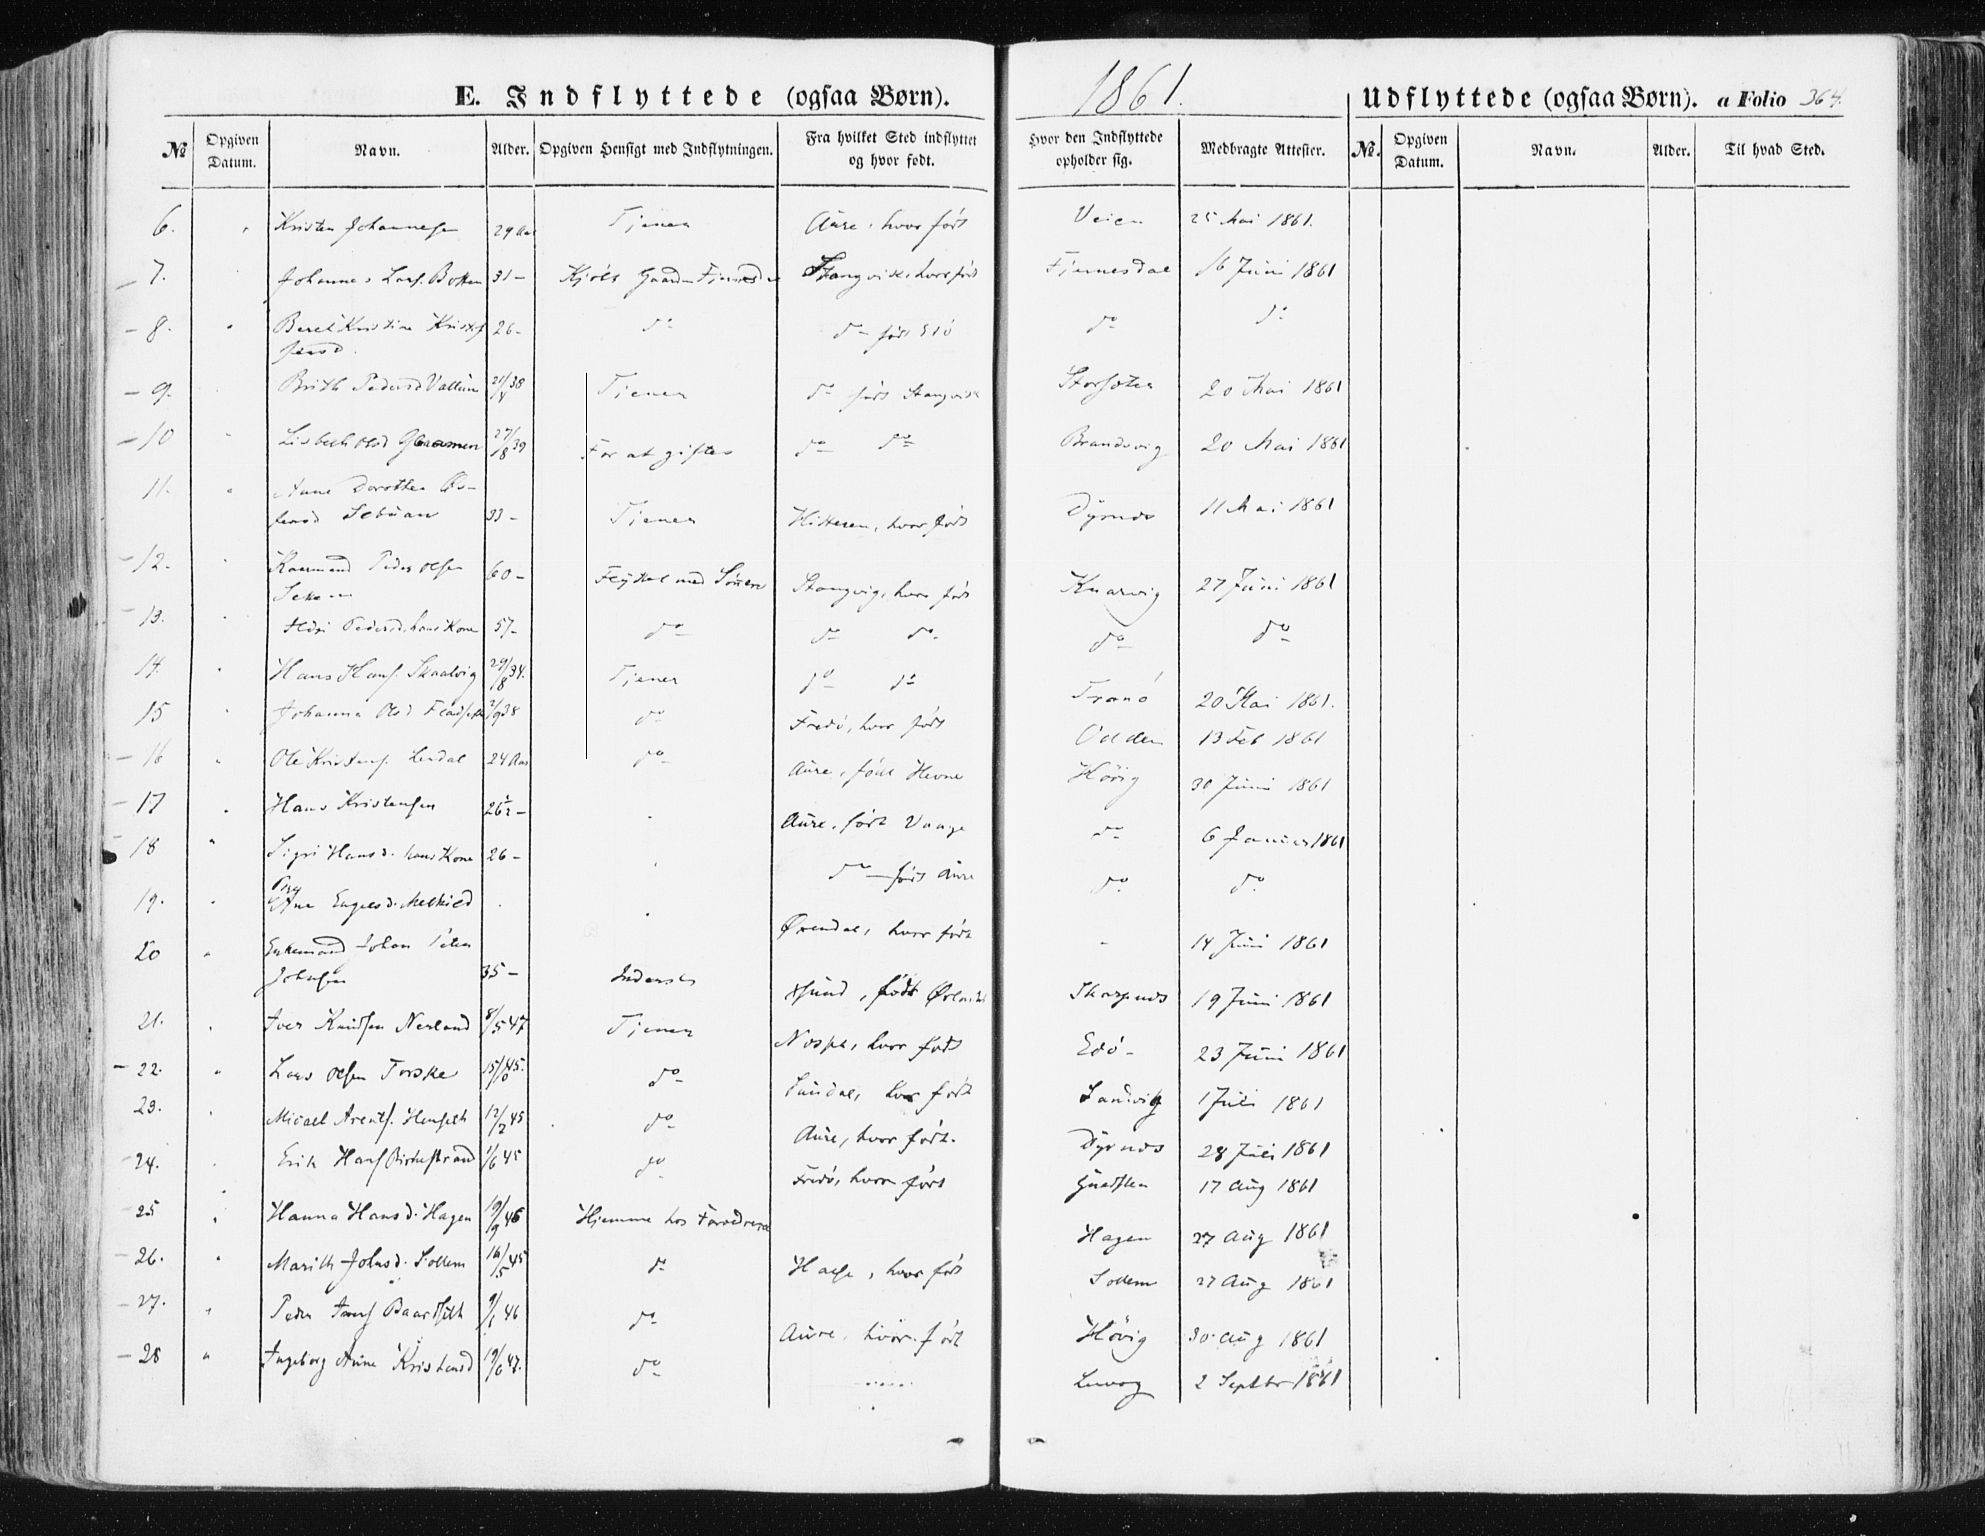 E. Indflyttede (ogsaa Børn). 1861. Udflyttede (ogsaa Børn). a Folio 364.
№ Opgiven Datum. Navn. Alder. Opgiven Hensigt med Indflytningen. Fra hvilket Sted indflyttet og hvor født. Hvor den Indflyttede opholder sig. Medbragte Attester. №. Opgiven Datum. Navn. Alder. Til hvad Sted.
6. " Kristen Johannesen 29 Aar Tjener Aure, hvor født Veien 25 Mai 1861.
7. Johannes Lars. Botten 31 – Kjøbt Gaarden Stangvik, hvor født Fjernesdal 16 Juni 1861
8. " Beret Kristine Kristofersd. 26 – do do født Edö do do
9. Brith Pedersd 21/4 38 Tjener do født Stangvik Storsøten 20 Mai 1861
10 Lisbeth Olsd 27/8 39 For at giftes do do Brandsvig 20 Mai 1861
11. " Anne Dorothea 33 – Tjener Hitteren, hvor født Dyrnæs 11 Mai 1861
12. Kaarmand Peder Olsen 60 – Flyttet med Sønen Stangvig, hvor født Knarvig 27 Juni 1861
13. Pedersd. hans Kone 57 – do do do do do
14. Hans Hans. Skaalvig 29/8 34. Tjener do do Tronö 20 Mai 1861.
15 Johanna Olsd 2/9 38 do Fredö, hvor født Odden 13 Feb 1861
16 " Ole Kristens. Lerdal 24 Aar do Aure, født Hevne Hövig 30 Juni 1861
17 " Hans Kristensen 26½ – Aure, født Vaage do 6 Januar 1861
18 " Sigri Hansd. hans Kone 26 – do født Aure do do
19. " Engelsd. Melkild Ørendal, hvor født 14 Juni 1861
20 " Enkemand Johan Peter Johnsen 35 – Inderst født 19 Juni 1861
21. " Iver Knudsen Nerland 8/5 47 Tjener hvor født Edö 23 Juni 1861
22. " Lars Olsen Torske 15/10 45. do Sundal, hvor født Sandvig 1 Juli 1861
23. " Micael Arents. Henseth 12/2 45 do Aure, hvor født. Dyrnæs 28 Juli 1861
24. Erik Hans Birkestrand 1/6 45 do Fredö, hvor født 17 Aug 1861
25 " Hanna Hansd. Hagen 19/9 46 Hjemme hos Forældrene Hagen 27 Aug 1861
26. " Marith Johnsd. Sollem 16/5 45 do Halse, hvor født Sollem 27 Aug 1861
27. " Peder Baardseth 9/1 46 do Aure, hvor født Hövig 30 Aug 1861
28 " Ingeborg Anne Kristensd 19/6 47. do 2 Septbr 1861